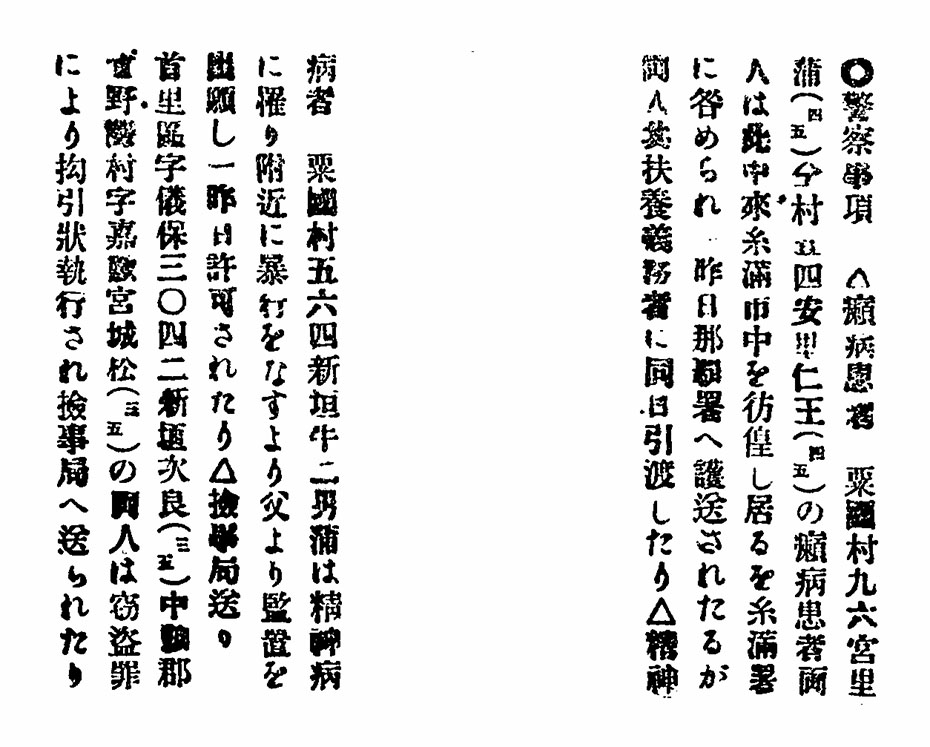 〇警察事項　△癩病患者　粟國村九六宮里
蒲(四五)仝村五四安里仁王(四五)の癩病患者両
人は此中來糸滿市中を彷徨し居るを糸滿署
に咎められ一昨日那覇署へ護送されたるが
両人共扶養義務者に同日引渡したり△精神
病者　粟國村五六四新垣牛二男蒲は精神病
に罹り附近に暴行をなすより父より監置を
出願し一昨日許可されたり△檢事局送り
首里區字儀保三〇四二新垣次良(三五)中頭郡
宜野灣村字嘉数宮城松(三五)の両人は窃盗罪
により拘引狀執行され檢事局へ送られたり